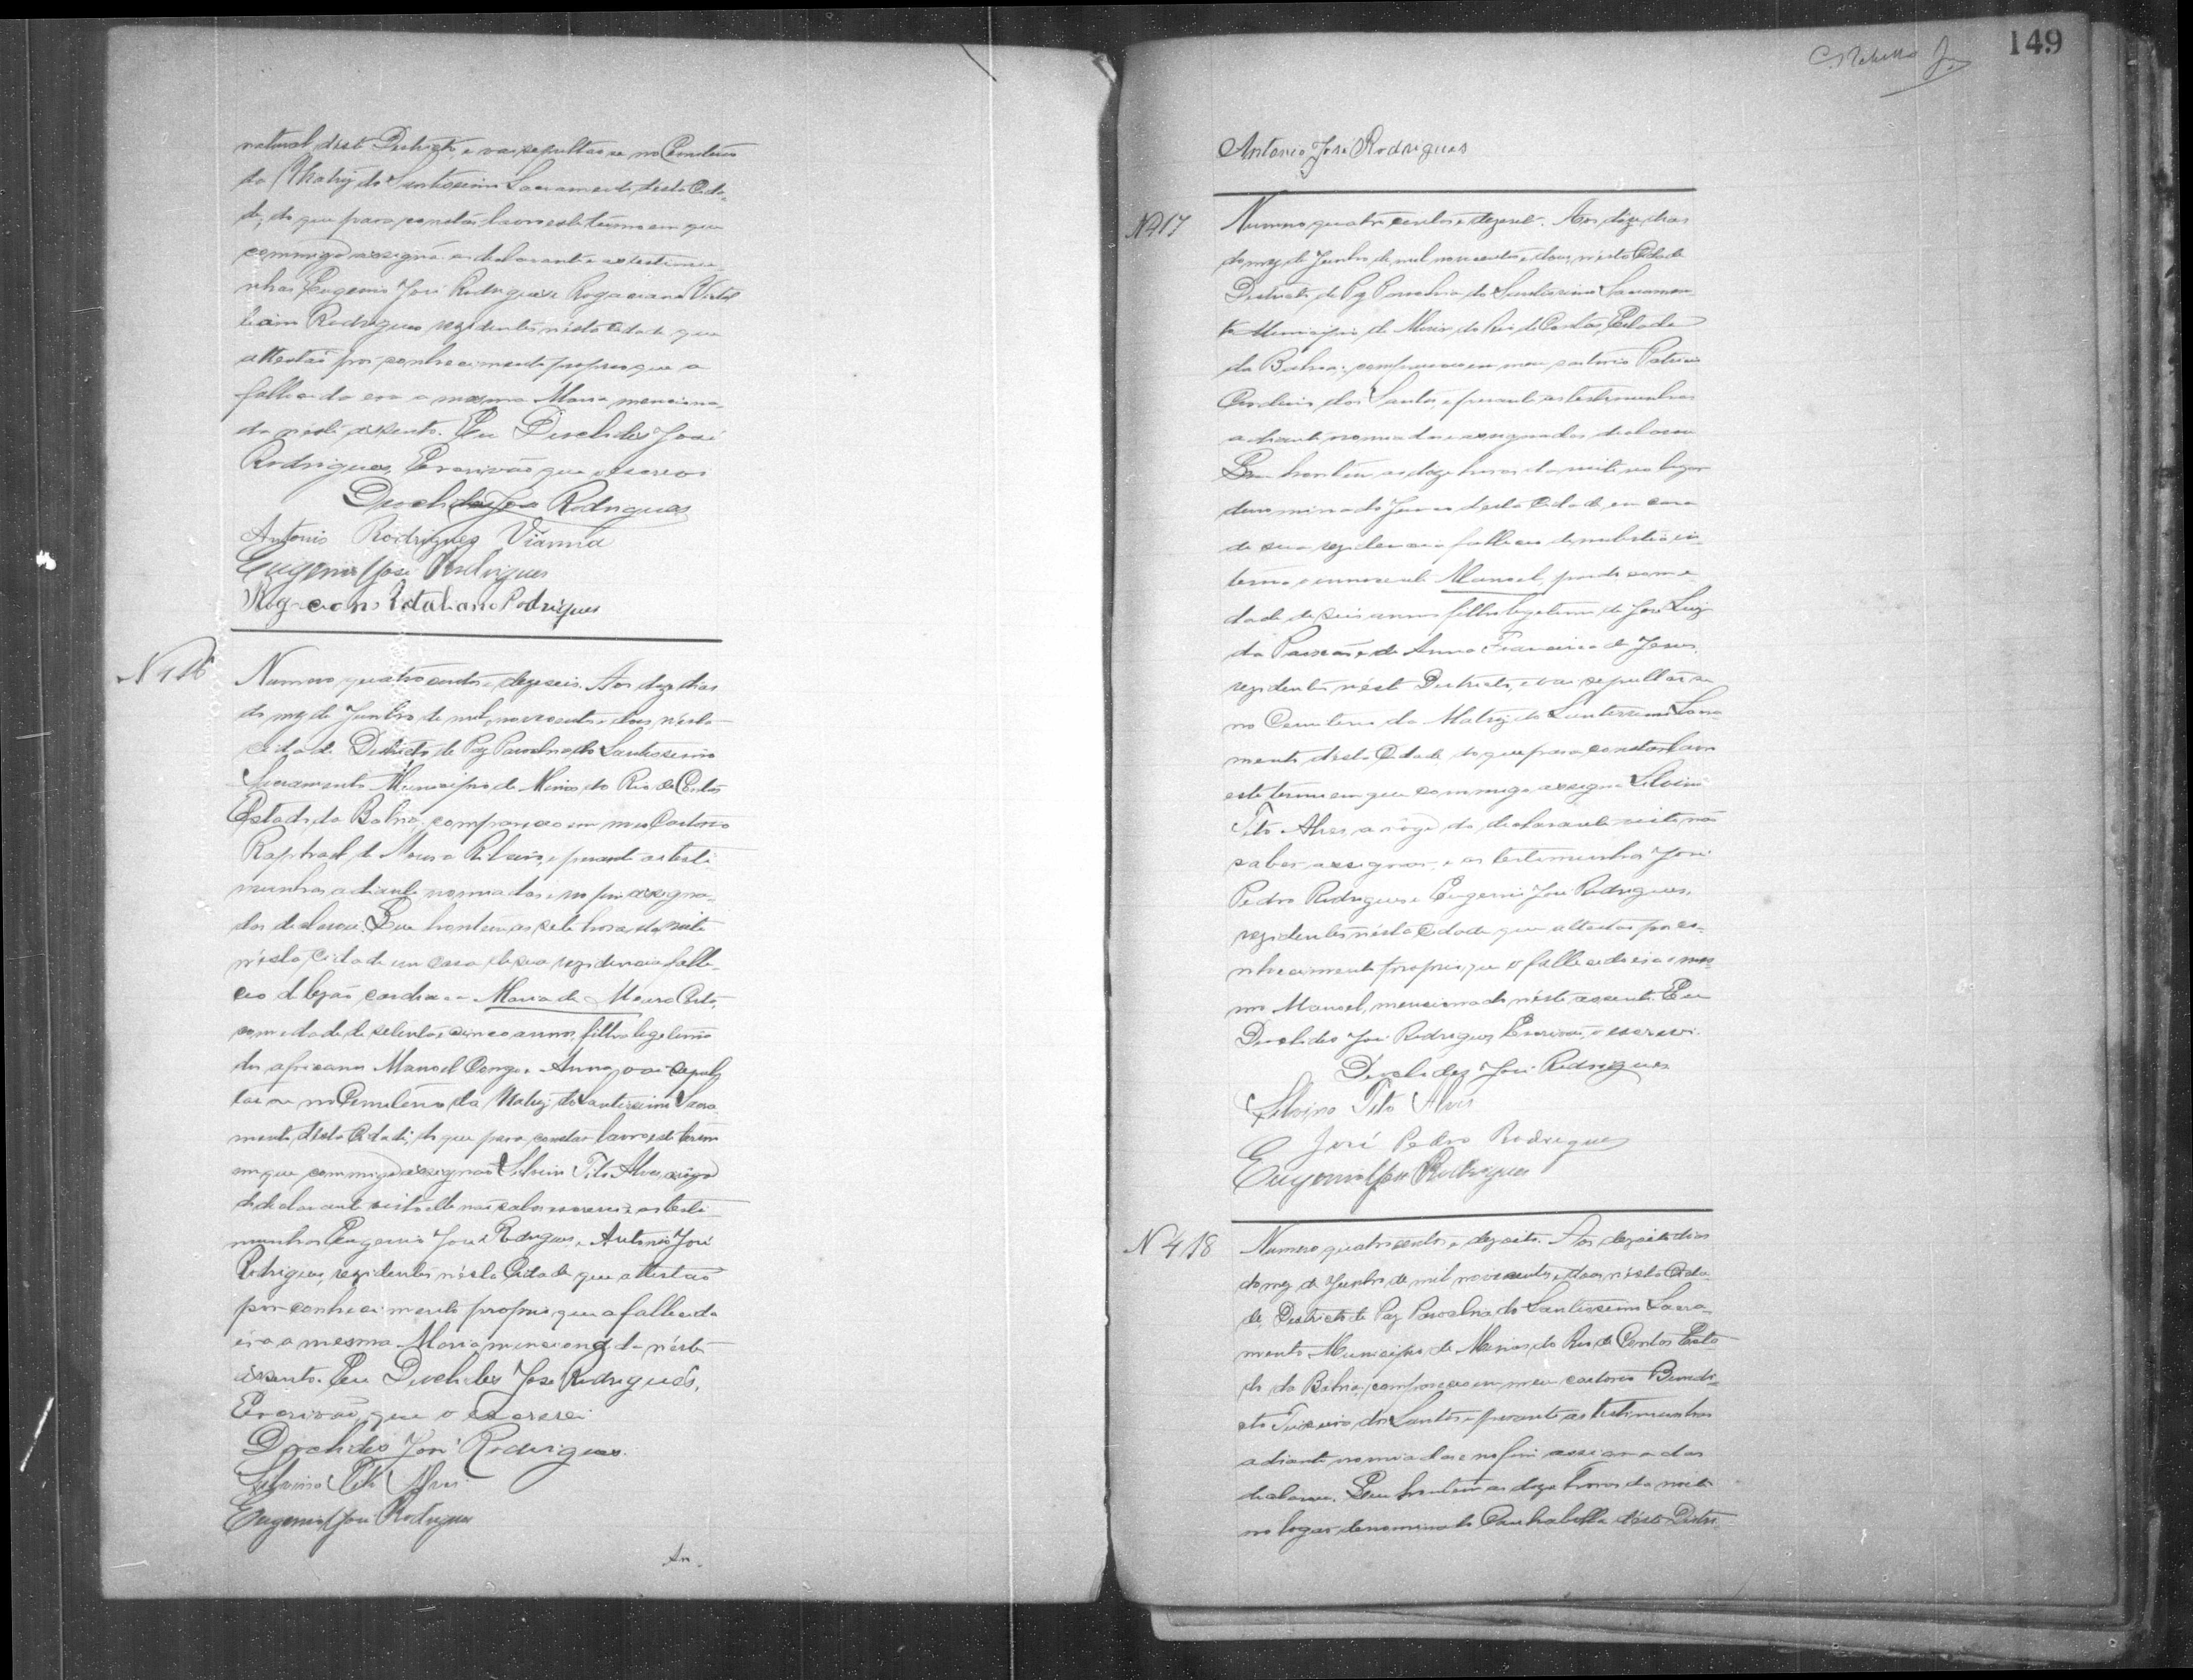 natural deste Districto, e vai sepultar-se no Cemiterio
da Matriz do Santissimo Sacramento desta Cida-
de, do que para constar lavro este termo em que
commigo assigna o declarante e as testimu-
nhas Eugenio José Rodrigues e Rogaciano Vital
leano Rodrigues rezidentes nésta Cidade que
attestão por conhecimento proprio que a
fallecida era a mesma Maria menciona-
da néste assento. Eu Deoclides José
Rodrigues, Escrivão que o escrevi
Deoclides José Rodrigues
Antonio Rodrigues Vianna
Eugenio José Rodrigues
Rogaciano Vitaliano Rodrigues
N 416
Numero quatro centos e dezeseis. Aos doze dias
do mez de Junho de mil novecentos e dous, nésta
cidade Districto de Paz Parochia do Santissimo
Sacramento Municipio de Minas do Rio de Contas
Estado da Bahia, compareceo em meu Cartorio
Raphael de Moura Ribeiro, e perante as testi
munhas adiante nomiadas e no fim assigna-
das declarou. Que hontem as sete horas da noite
nésta Cidade em casa de sua rezidencia falle-
ceo de lezão cardiaca Maria de Moura Costa,
com edade de setenta e cinco annos, filha legitima
dos africanos Manoel Congo e Anna, vai sepul
tar-se no Cemiterio da Matriz do Santissimo Sacra-
mento désta Cidade, do que para constar lavro este termo
em que commigo assignão Silvino Tito Alves, a rogo
do declarante visto elle não saber escrever e as testi-
munhas Eugenio José Rodrigues e Antonio José
Rodrigues, rezidentes nésta Cidade que attestão
por conhecimento proprio que a fallecida
era a mesma Maria mencionada néste
assento. Eu Deoclides José Rodrigues,
Escrivão, que o escrevi
Deoclides José Rodrigues.
Silvino Tito Alves
Eugenio José Rodrigues
An.
149
Antonio José Rodrigues
N 417
Numero quatro centos e dezesete. Aos doze dias
do mez de Junho de mil novecentos e dous nésta Cidade
Districto de Paz Parochia do Santissimo Sacramen-
to Municipio de Minas do Rio de Contas, Estado
da Bahia, compareceo em meu cartorio Patricio
dos Santos, e perante as testimunhas
adiante nomiadas e assignadas declarou
Que hontem as doze horas da noite no lugar
denominado desta Cidade, em casa
de sua rezidencia falleceo de molestia in-
terna o innocente Manoel, pardo com e-
dade de seis annos filho legitimo de José Luiz
da Paixão e de Anna Francisca de Jesus,
rezidentes néste Districto, e vai sepultar-se
no Cemiterio da Matriz do Santissimo Sacra-
mento désta Cidade, do que para constar lavro
este termo em que commigo assigna Silvino
Tito Alves, a rogo do declarante visto não
saber assignar, e as testimunhas José
Pedro Rodrigues e Eugenio José Rodrigues,
rezidentes nésta Cidade que attestão por co-
nhecimento proprio que o fallecido era o mes-
mo Manoel, mencionado néste assento. Eu
Deoclides José Rodrigues Escrivão, o escrevi.
Deoclides José Rodrigues
Silvino Tito Alves
José Pedro Rodrigues
Eugenio José Rodrigues
N 418
Numero quatro centos e dezoito. Aos dezoito dias
do mez de Junho de mil novecentos e dous nésta Cida-
de, Districto de Paz Parochia do Santissimo Sacra-
mento Municipio de Minas do Rio de Contas Esta-
do da Bahia, compareceo em meu cartorio Benedi-
cto Teixeira dos Santos e perante as testimunhas
adiante nomiadas e no fim assignadas
declarou. Que hontem as doze horas da noite
no logar denominado déste Distri-